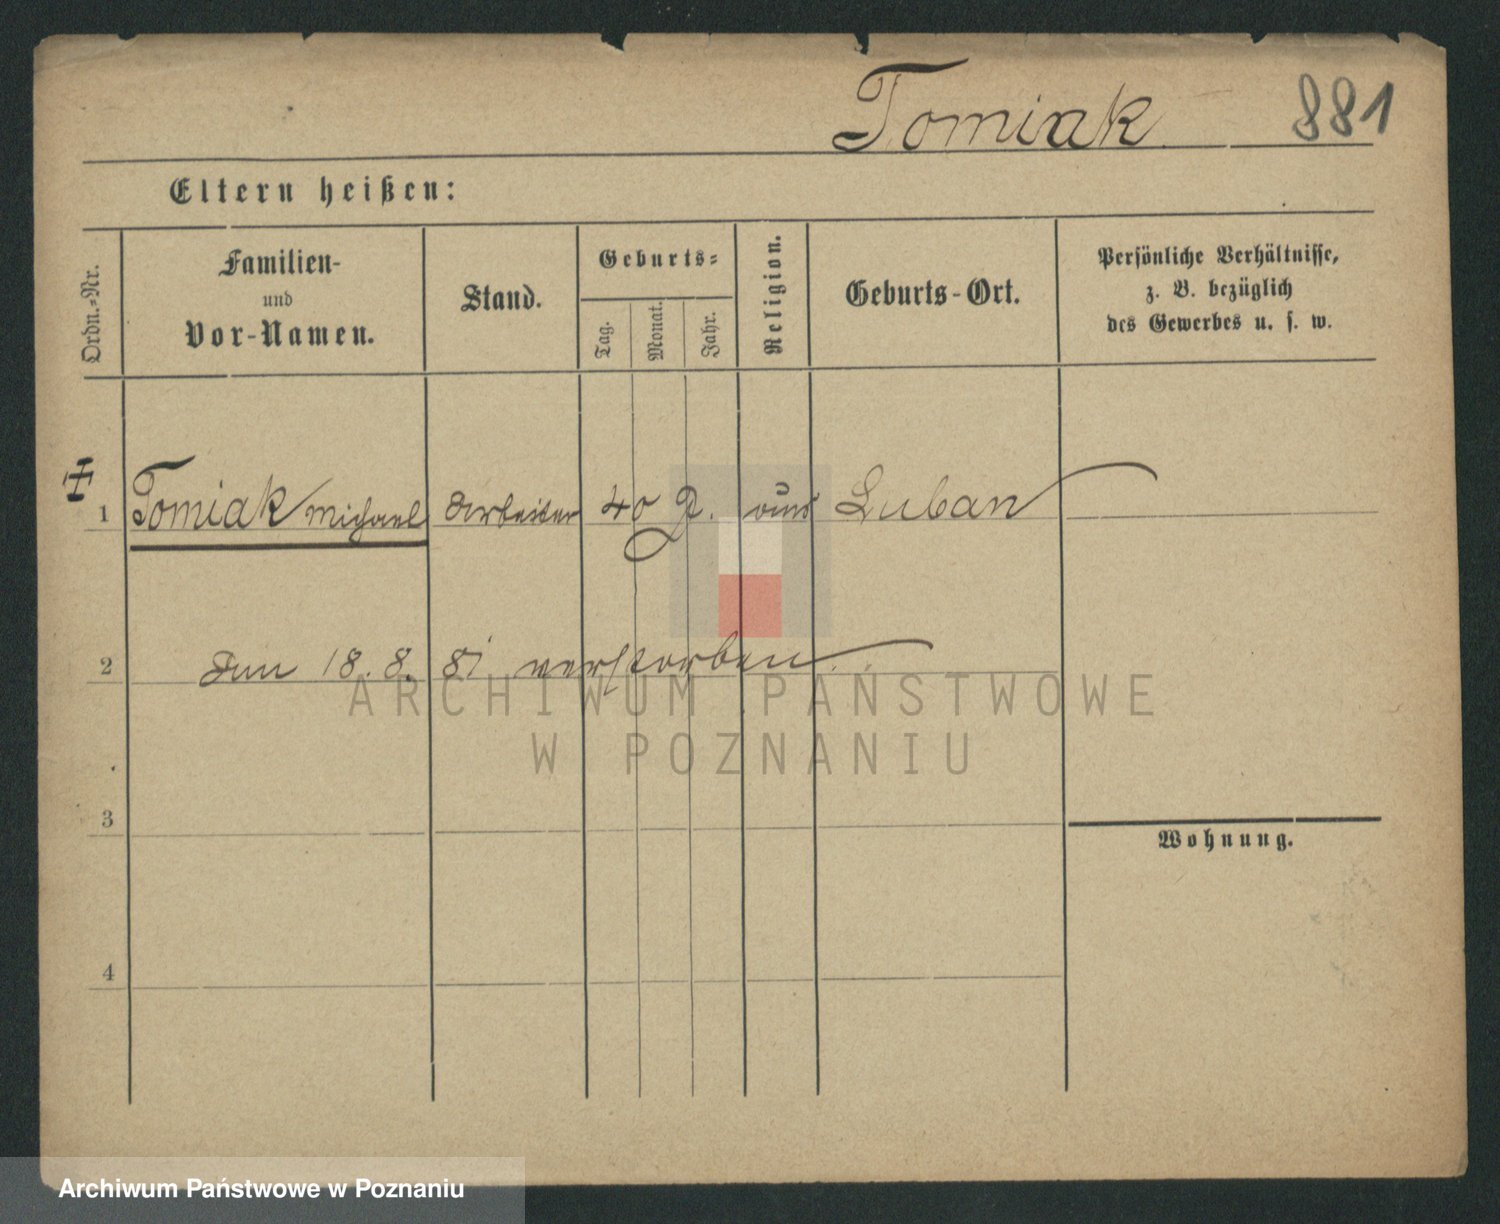 Tomiak 881
Eltern heißen:
Ordn.-Nr.
Familien-
und
Vor-Namen.
Stand.
Geburts-
Tag.
Monat.
Jahr.
Religion.
Geburts-Ort.
Persönliche Verhältnisse,
z. B. bezüglich
des Gewerbes u. s. w.
1 Tomiak Michael Arbeiter 40 J. aus Luban
2 den 18. 8. 81 verstorben
3
Wohnung.
4
ARCHIWUM PAŃSTWOWE
W POZNANIU
Archiwum Państwowe w Poznaniu